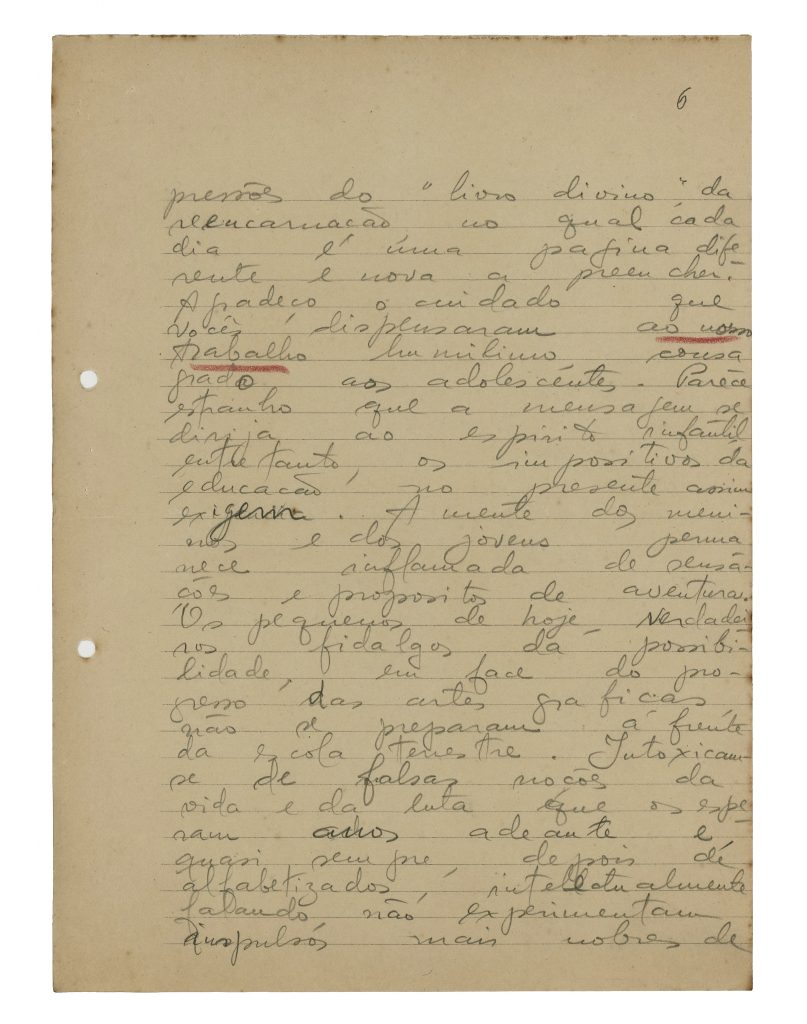 6
pressões do "livro divino" da
reencarnação no qual cada
dia é uma pagina dife
rente e nova a preencher.
Agradeço o cuidado que
vocês dispensaram ao nosso
trabalho humilimo consa
grado aos adolescentes. Parece
estranho que a mensagem se
dirija ao espirito infantil
entretanto, os impositivos da
educação no presente assim
exigem. A mente dos meni-
nos e dos jovens perma
nece inflamada de sensa-
ções e propositos de aventura.
Os pequenos de hoje, verdadei
ros fidalgos da possibi-
lidade, em face do pro-
gresso das artes graficas,
não se preparam á frente
da escola terrestre. Intoxicam-
se de falsas noções da
vida e da luta que os espe
ram anos adeante e
quasi sempre, depois de
alfabetizados, intelectualmente
falando, não experimentam
impulsos mais nobres de